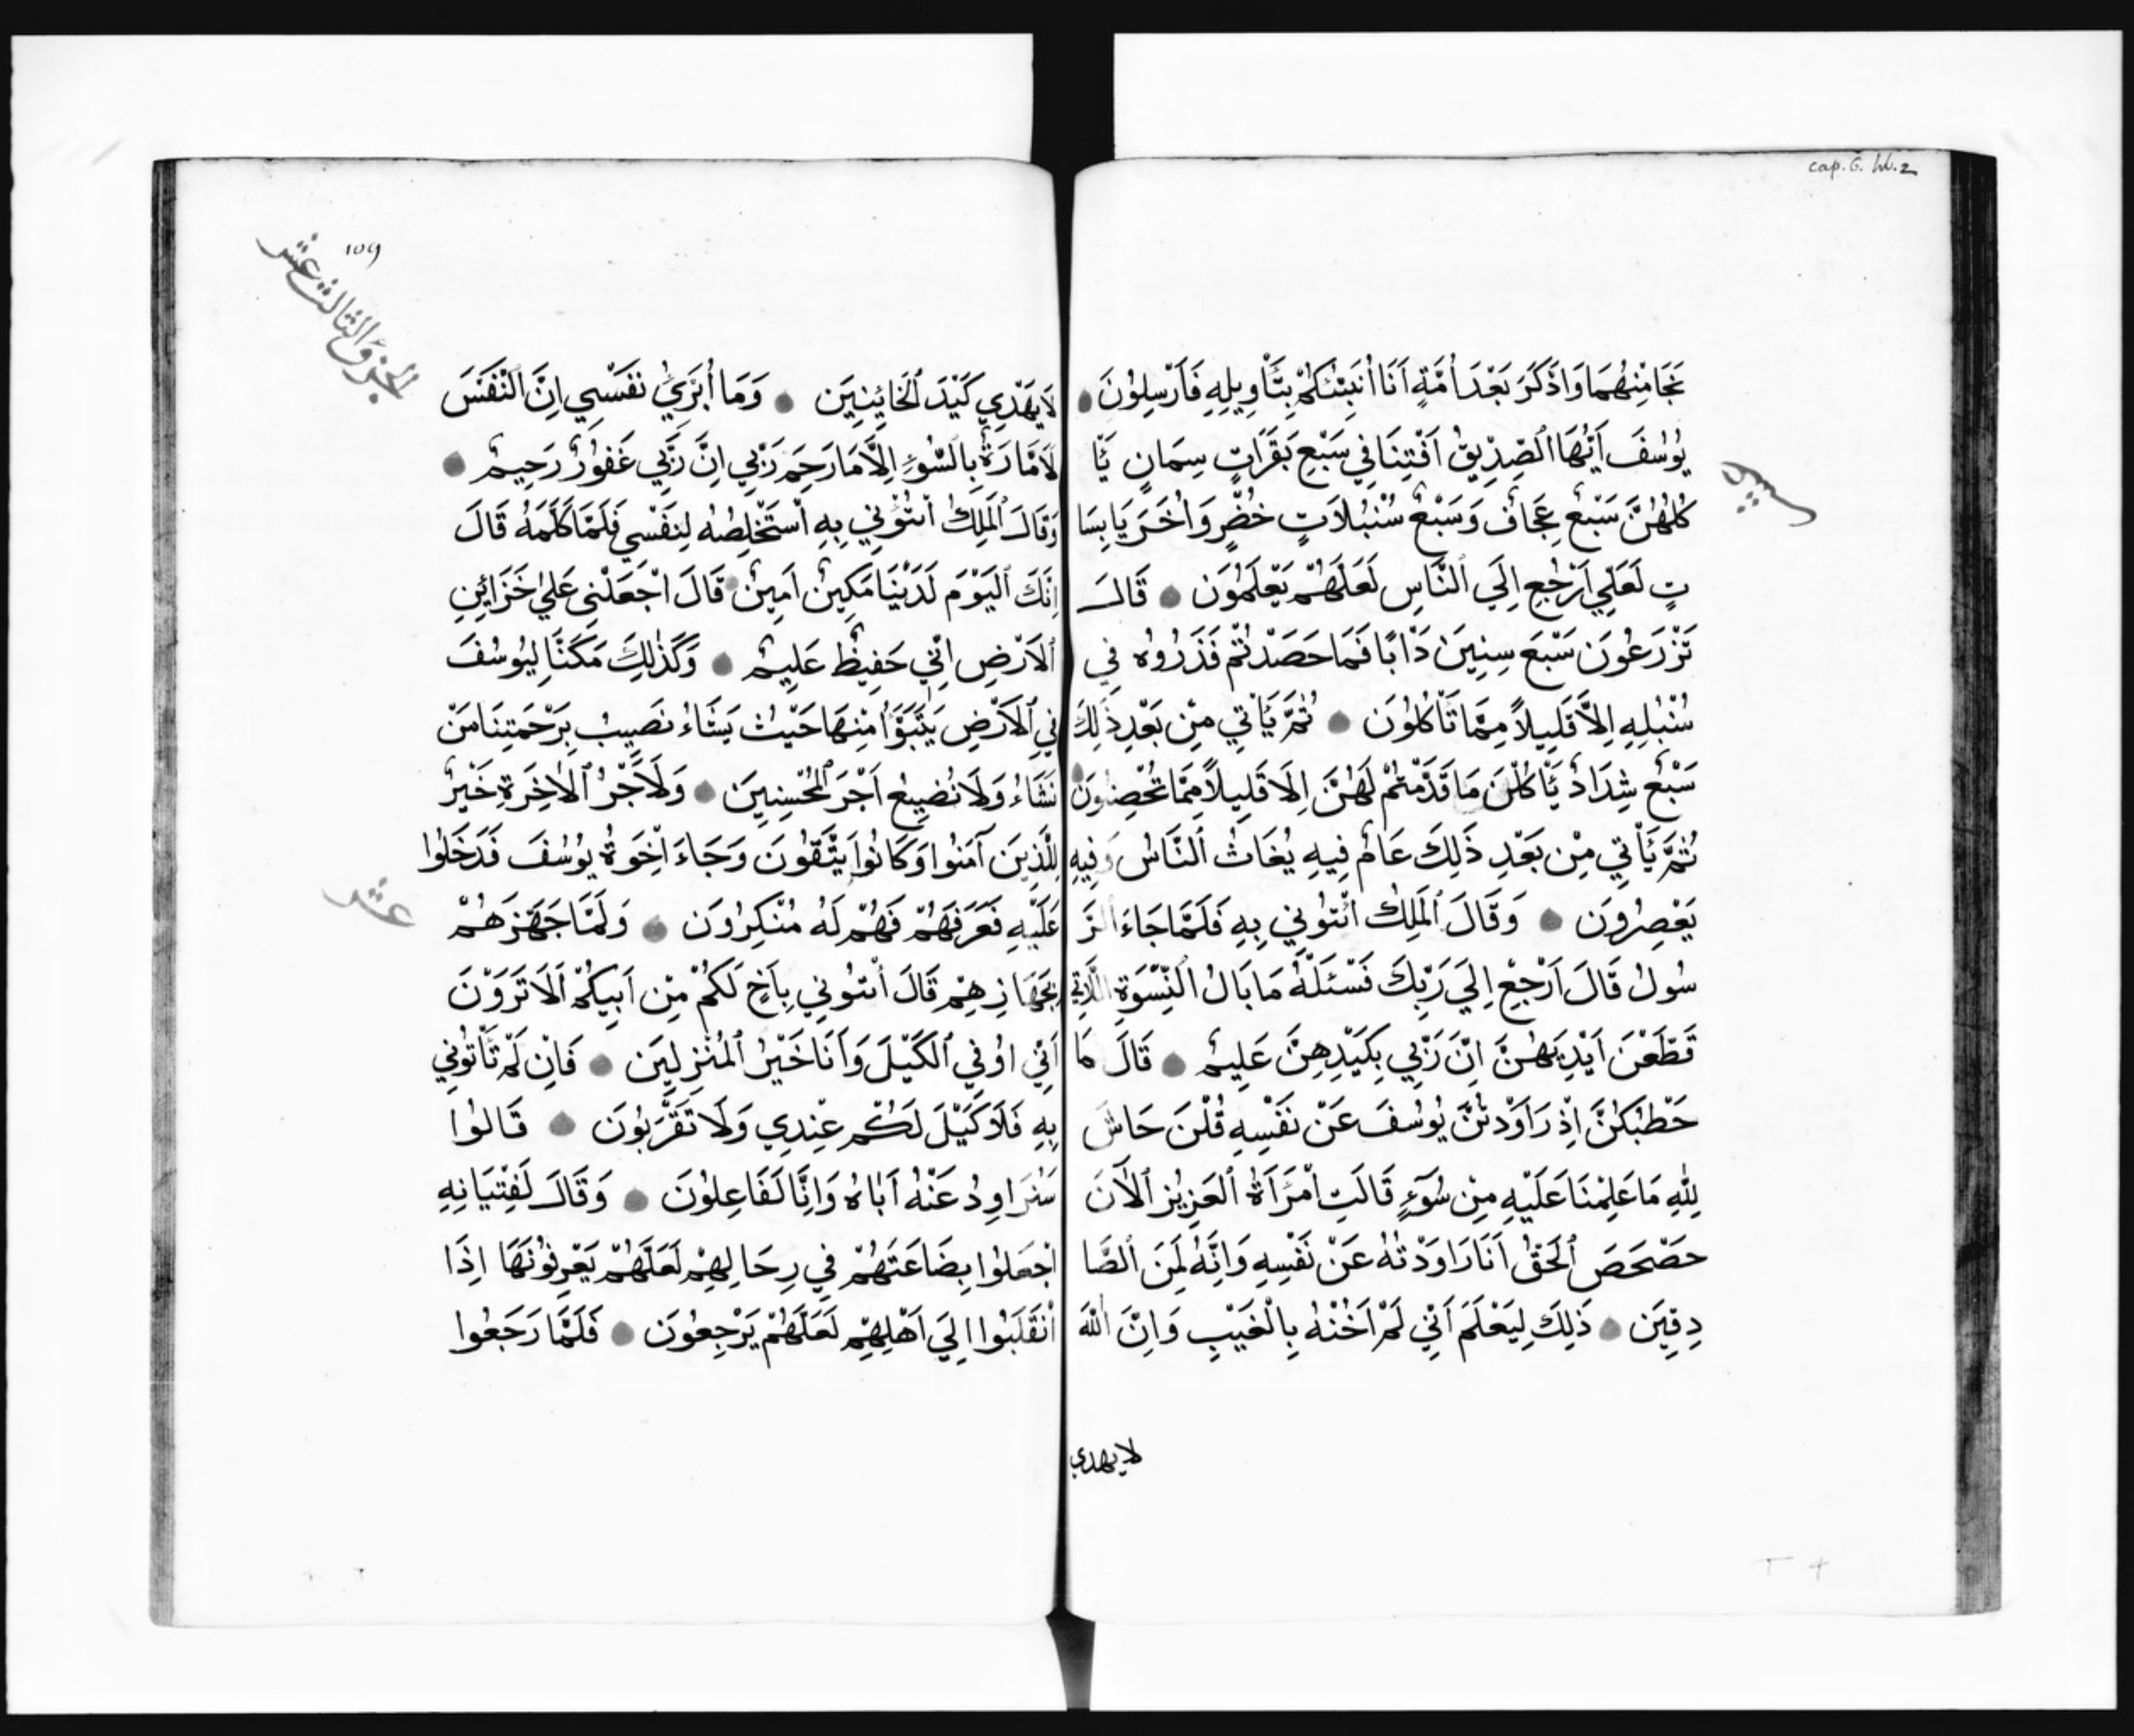 cap. 6. lib. 2
نَجَا مِنْهُمَا وَادَّكَرَ بَعْدَ أُمَّةٍ اَنَا اُنَبِّئُكُمْ بِتَأْوِيلِهِ فَاَرْسِلُونَ
يُوسُفَ اَيُّهَا الصِّدِّيقُ اَفْتِنَا فِي سَبْعِ بَقَرَاتٍ سِمَانٍ يَّا
كُلُهُنَّ سَبْعٌ عِجَافٌ وَسَبْعٌ سُنْبُلَاتٍ خُضْرٍ وَاُخَرَ يَابِسَا
تٍ لَعَلِّي اَرْجِعِ اِلَي النَّاسِ لَعَلَّهُمْ يَعْلَمُونَ قَالَ
تَزْرَعُونَ سَبْعَ سِنِينَ دَاْبًا فَمَا حَصَدْتُمْ فَذَرُوهُ فِي
سُنْبُلِهِ اِلَّا قَلِيلاً مِمَّا تَأْكُلُونَ ثُمَّ يَاْتِي مِنْ بَعْدِ ذَلِكَ
سَبْعٌ شِدَادٌ يَّاكُلْنَ مَا قَدَّمْتُمْ لَهُنَّ اِلَا قَلِيلاً مِمَّا تُحْصِنُونَ
ثُمَّ يَأْتِي مِنْ بَعْدِ ذَلِكَ عَامٌ فِيهِ يُغَاثُ النَّاسُ وَفِيهِ
يَعْصِرُونَ وَقَالَ الْمَلِكُ ائْتُونِي بِهِ فَلَمَّا جَاءَ الرَّ
سُولُ قَالَ اَرْجِعْ اِلَي رَبِّكَ فَسْئَلْهُ مَا بَالُ النِّسْوَةِ اللَّاتِي
قَطَّعْنَ اَيْدِيَهُنَّ اِنَّ رَبِّي بِكَيْدِهِنَّ عَلِيمٌ قَالَ مَا
خَطْبُكُنَّ اِذْ رَاوَدْتُنَّ يُوسُفَ عَنْ نَفْسِهِ قُلْنَ حَاشَ
لِلّٰهِ مَا عَلِمْنَا عَلَيْهِ مِنْ سُوءٍ قَالَتِ امْرَاَةُ الْعَزِيزِ الْآنَ
حَصْحَصَ الْحَقُّ اَنَا رَاوَدْتُهُ عَنْ نَفْسِهِ وَاِنَّهُ لَمِنَ الصَّا
دِقِينَ ذَلِكَ لِيَعْلَمَ اَنِّي لَمْ اَخُنْهُ بِالْغَيْبِ وَاِنَّ اللّٰهَ
لا يهدي
109
الجزو الثالث عشر
لَا يَهْدِي كَيْدَ الْخَائِنِينَ وَمَا اُبَرِّيُ نَفْسِي اِنَّ النَّفْسَ
لَاَمَّارَةٌ بِالسُّوءِ اِلَّا مَا رَحِمَ رَبِّي اِنَّ رَبِّي غَفُورٌ رَحِيمٌ
وَقَالَ الْمَلِكُ ائْتُونِي بِهِ اَسْتَخْلِصْهُ لِنَفْسِي فَلَمَّا كَلَّمَهُ قَالَ
اِنَّكَ الْيَوْمَ لَدَيْنَا مَكِينٌ اَمِينٌ قَالَ اجْعَلْنِي عَلَي خَزَائِنِ
الْاَرْضِ اِنِّي حَفِيظٌ عَلِيمٌ وَكَذٰلِكَ مَكَّنَّا لِيُوسُفَ
فِي الْاَرْضِ يَتَبَوَّاُ مِنْهَا حَيْثُ يَشَاءُ نُصِيبُ بِرَحْمَتِنَا مَنْ
نَشَاءُ وَلَا نُضِيعُ اَجْرَ الْمُحْسِنِينَ وَلَاَجْرُ الْاٰخِرَةِ خَيْرٌ
لِلَّذِينَ آمَنُوا وَكَانُوا يَتَّقُونَ وَجَاءَ اِخْوَةُ يُوسُفَ فَدَخَلُوا
عَلَيْهِ فَعَرَفَهُمْ فَهُمْ لَهُ مُنْكِرُونَ وَلَمَّا جَهَّزَهُمْ
بِجَهَازِهِمْ قَالَ ائْتُونِي بِاَخٍ لَكُمْ مِنْ اَبِيكُمْ اَلَا تَرَوْنَ
اَنِّي اُوفِي الْكَيْلَ وَاَنَا خَيْرُ الْمُنْزِلِينَ فَاِنْ لَمْ تَأْتُونِي
بِهِ فَلَا كَيْلَ لَكُمْ عِنْدِي وَلَا تَقْرَبُونَ قَالُوا
سَنُرَاوِدُ عَنْهُ اَبَاهُ وَاِنَّا لَفَاعِلُونَ وَقَالَ لِفِتْيَانِهِ
اجْعَلُوا بِضَاعَتَهُمْ فِي رِحَالِهِمْ لَعَلَّهُمْ يَعْرِفُونَهَا اِذَا
انْقَلَبُوا اِلَيَ اَهْلِهِمْ لَعَلَّهُمْ يَرْجِعُونَ فَلَمَّا رَجَعُوا
عشر